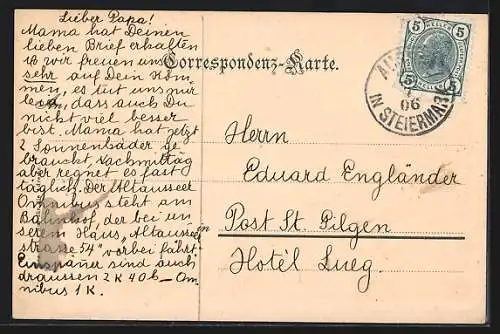 Lieber Papa!
Mama hat Deinen
lieben Brief erhalten
wir freuen uns
sehr auf Dein Kom-
men, es tut uns nur
leid, dass auch Du
nicht viel besser
bist. Mama hat jetzt
2 Sonnenbäder ge
braucht, Nachmittag
aber regnet es fast
täglich. Der Altausseer
Omnibus steht am
Bahnhof, der bei un
serem Haus, "Altausseer
strasse 54" vorbei fährt.
Einspänner sind auch
draussen 2 K 40 h – Om
nibus 1 K.
Correspondenz-Karte.
5 5
5 5
06
IN STEIERMAR
Herrn
Eduard Engländer
in
Post St. Gilgen
Hotél Lueg.